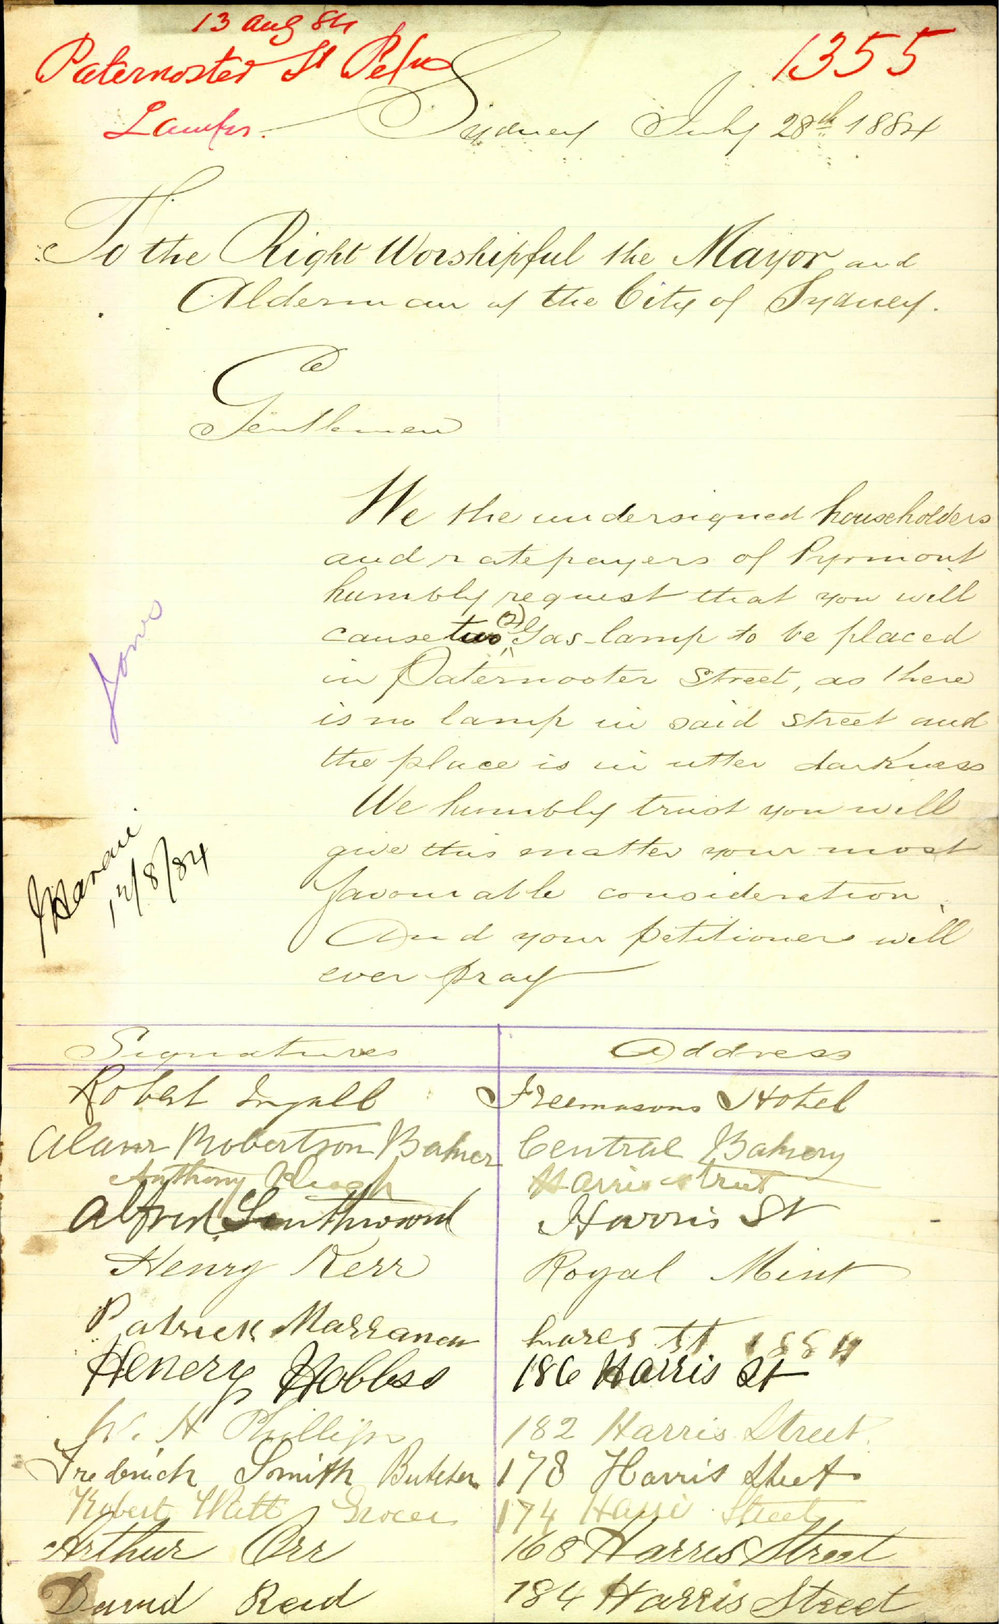 13 Aug 84
Paternoster St Petn
1355
Lamps.
Sydney July 28th 1884
To the Right Worshipful the Mayor and
Alderman of the City of Sydney.
Gentlemen
We the undersigned householders
and ratepayers of Pyrmont
humbly request that you will
cause two Gas lamp to be placed
in Paternoster Street, as there
is no lamp in said street and
the place is in utter darkness
We humbly trust you will
give this matter your most
favourable consideration
And your petitioners will
ever pray
12/8/84
Signatures Address
Robert Ingall Freemasons Hotel
Robertson Baker Central Bakery
Anthony Harris street
Alfred Harris St
Henry Kerr Royal Mint
Patrick St 1884
Henery Hobbs 186 Harris St
W. H Phillips 182 Harris Street
Frederick Smith Butcher 178 Harris Street
Robert Watt Grocer 174 Harris Street
Arthur Orr 168 Harris Street
David Reid 184 Harris Street